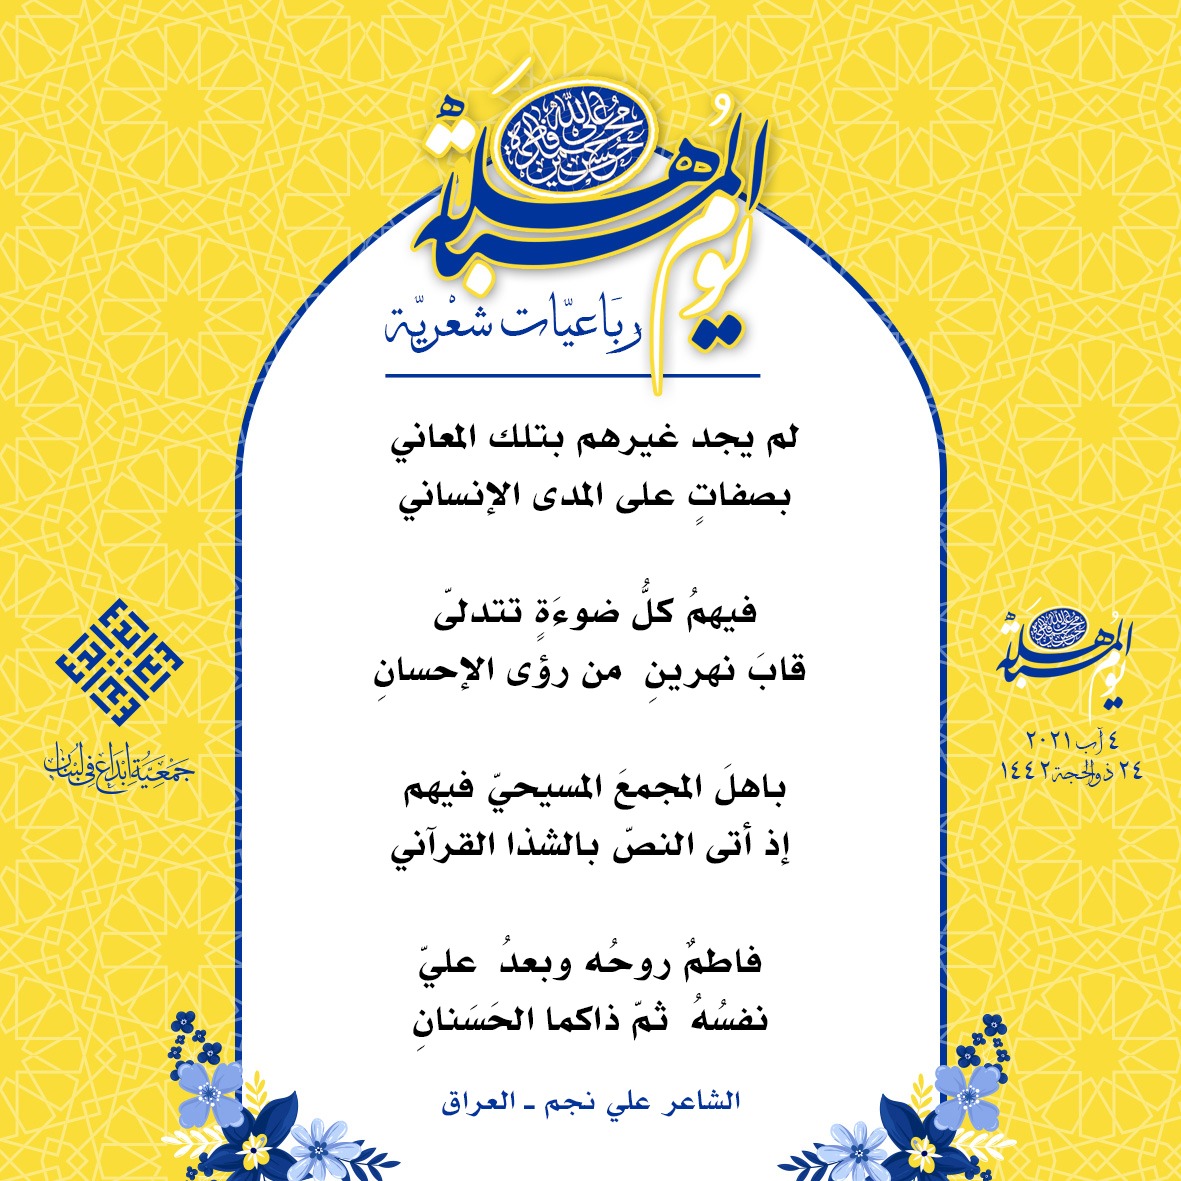 يوم المباهلة
محمد علي الله فاطمة حسن حسين
رباعيّات شعْريّة
لم يجد غيرهم بتلك المعاني
بصفاتٍ على المدى الإنساني
فيهمُ كلُّ ضوءَةٍ تتدلىّ
قابَ نهرينِ من رؤى الإحسانِ
باهلَ المجمعَ المسيحيّ فيهم
إذ أتى النصّ بالشذا القرآني
فاطمٌ روحُه وبعدُ عليّ
نفسُهُ ثمّ ذاكما الحَسَنانِ
الشاعر علي نجم ـ العراق
جمعيّة إبداع في لبنان
يوم المباهلة
٤ آب ٢٠٢١
٢٤ ذو الحجة ١٤٤٢